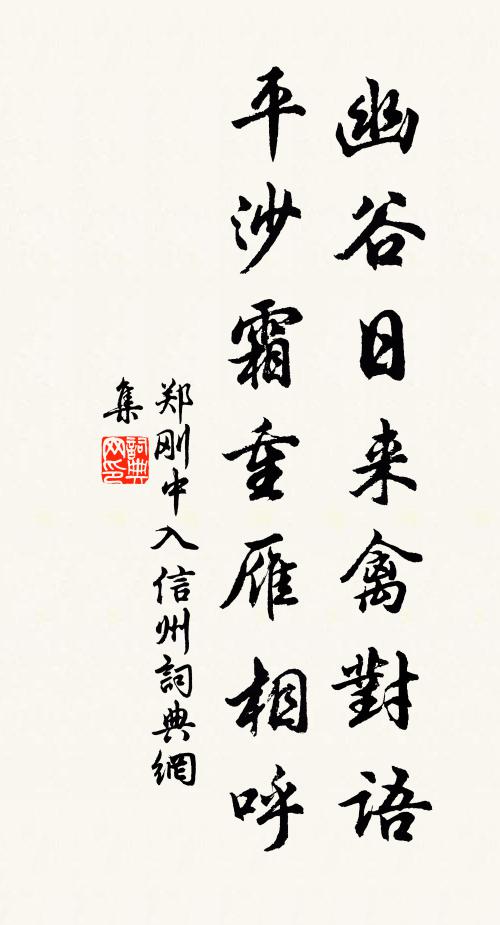 幽谷日来禽對語
平沙霜重雁相呼
郑刚中入信州詞典網
集
詞典網印